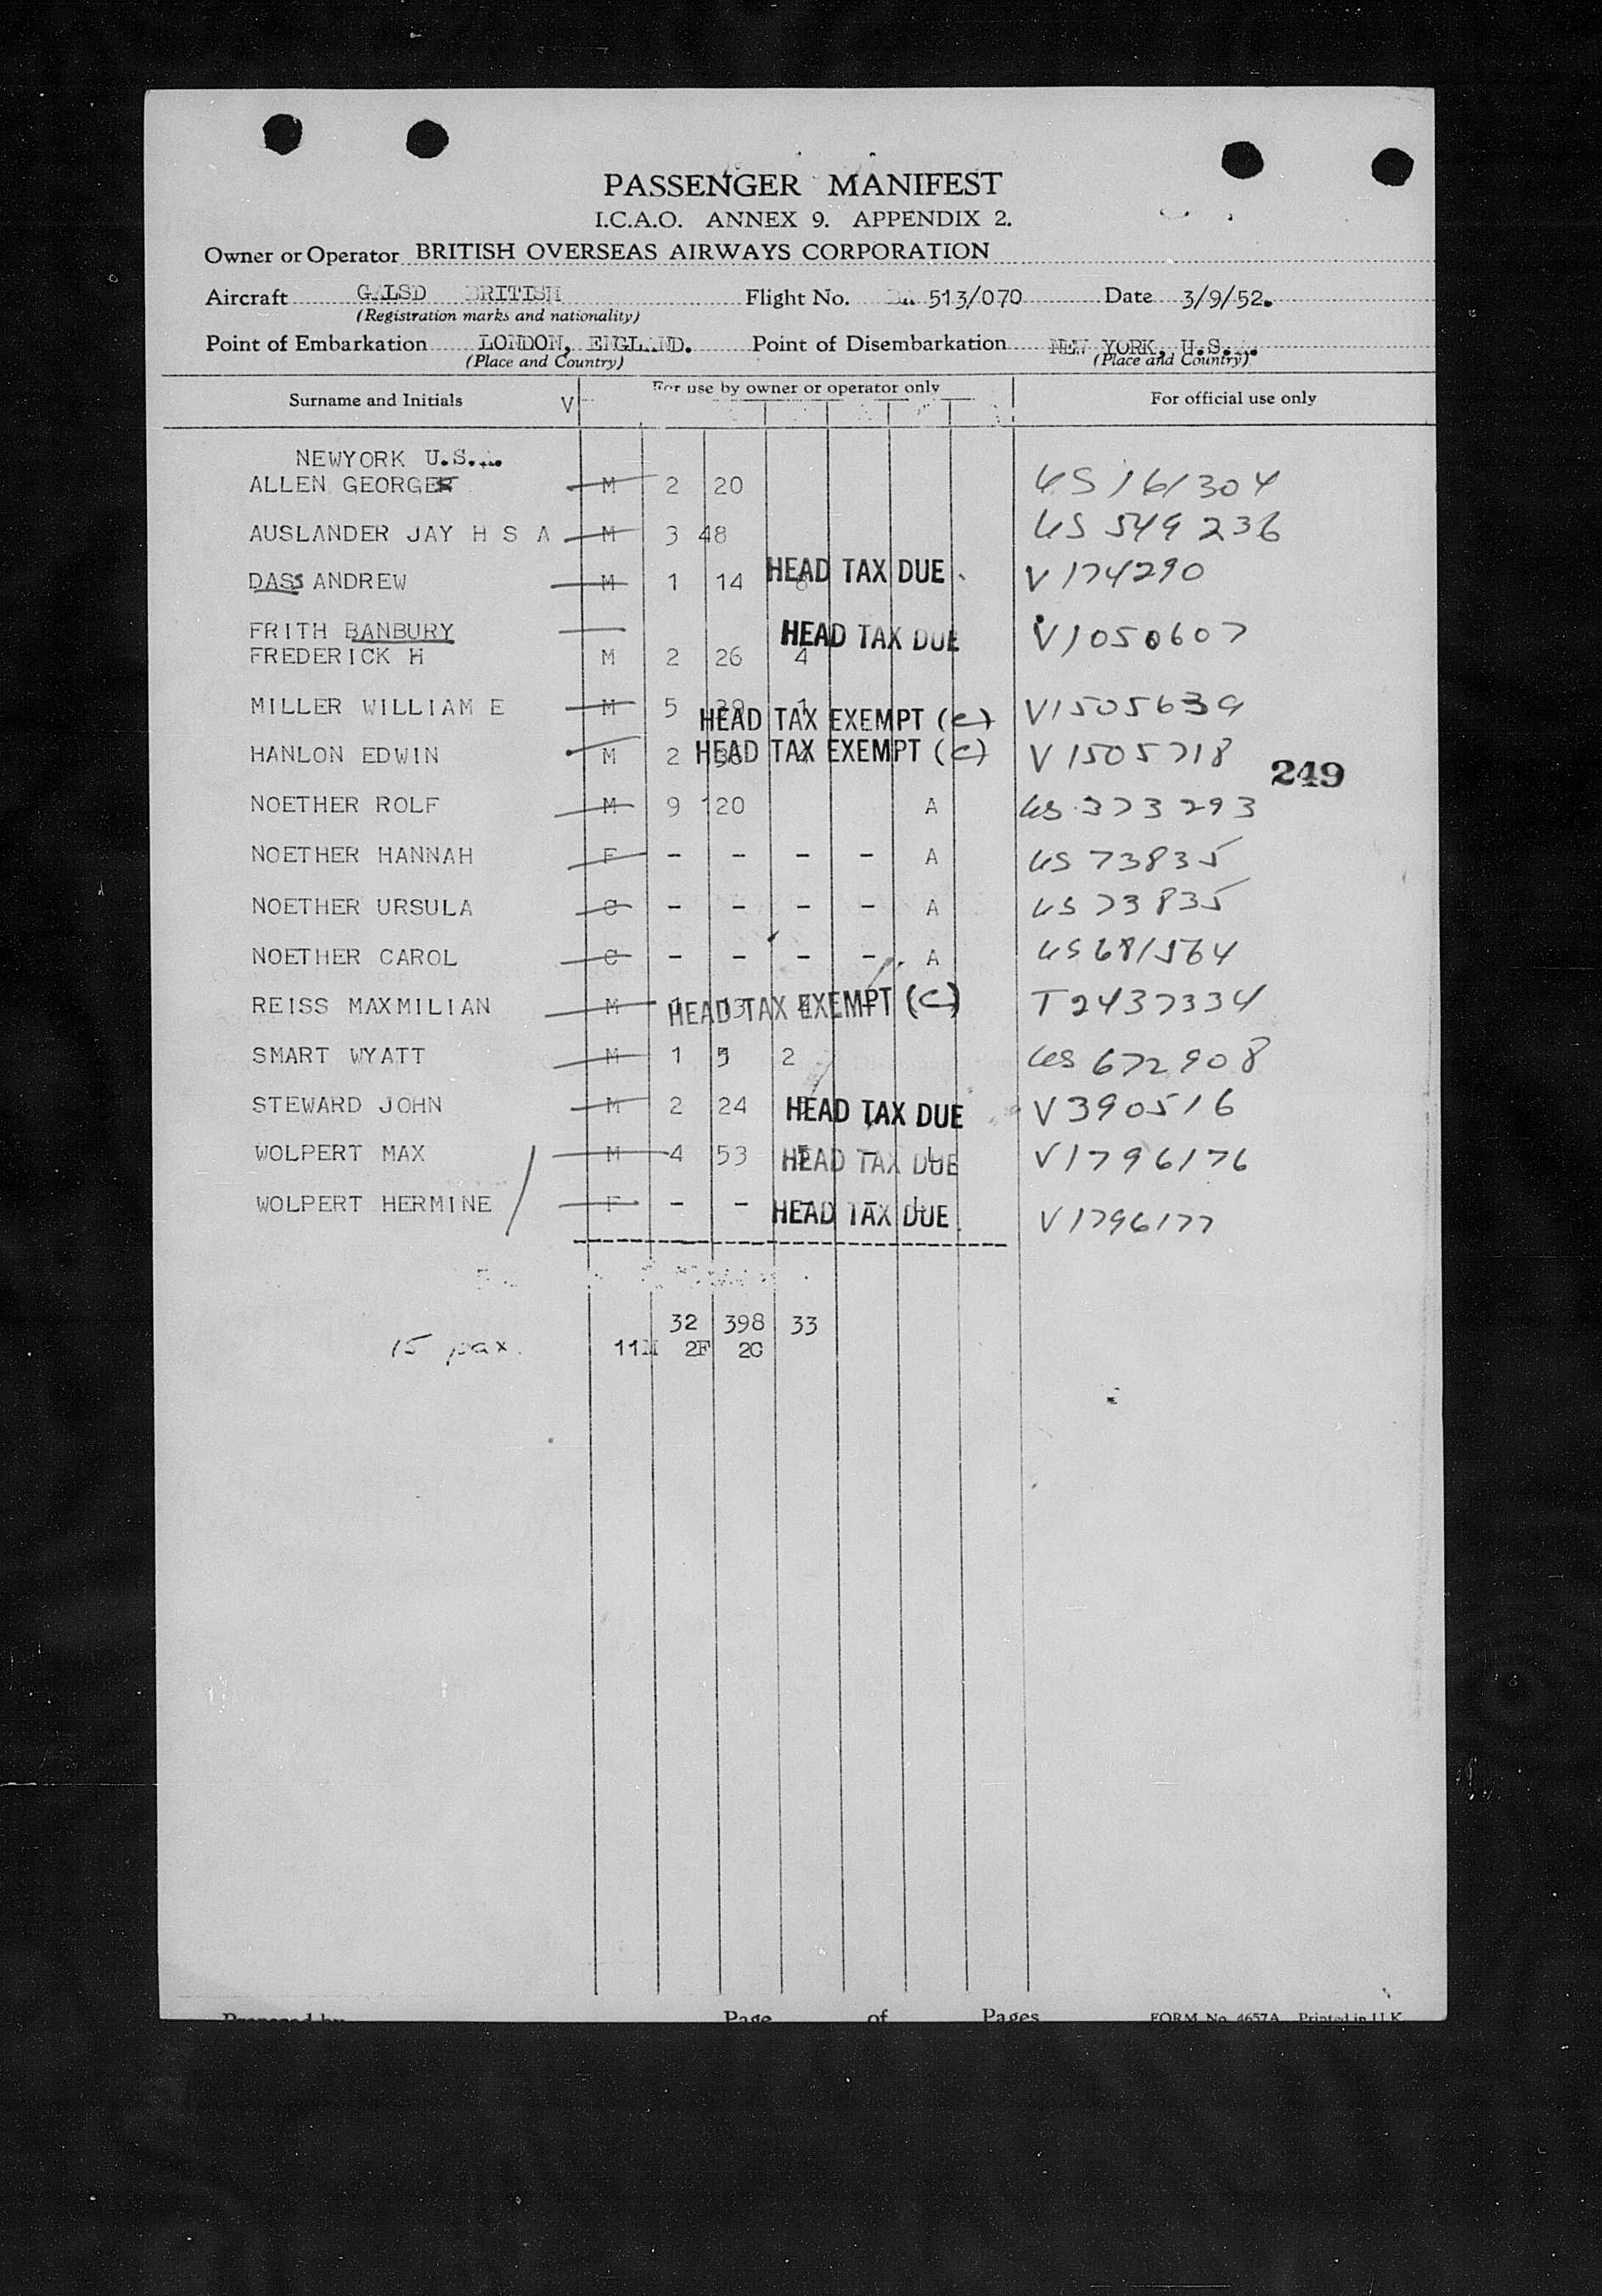 PASSENGER MANIFEST
I.C.A.O. ANNEX 9. APPENDIX 2.
Owner or Operator BRITISH OVERSEAS AIRWAYS CORPORATION
Aircraft GALSD BRITISH Flight No. 513/070 Date 3/9/52.
(Registration marks and nationality)
Point of Embarkation LONDON, ENGLAND. Point of Disembarkation NEW YORK, U.S.
(Place and Country) (Place and Country)
Surname and Initials V For use by owner or operator only For official use only
NEWYORK U.S.
ALLEN GEORGE M 2 20 US 161304
AUSLANDER JAY H S A M 3 48 US 549 236
DASS ANDREW M 1 14 HEAD TAX DUE V 174290
FRITH BANBURY HEAD TAX DUE V1050607
FREDERICK H M 2 26 4
MILLER WILLIAM E M 5 HEAD TAX EXEMPT (C) V1505639
HANLON EDWIN M 2 HEAD TAX EXEMPT (C) V 1505718
249
NOETHER ROLF M 9 120 A US 373293
NOETHER HANNAH F - - - - A US 73835
NOETHER URSULA C - - - - A US 73835
NOETHER CAROL C - - - - A US 681564
REISS MAXMILIAN M 13 HEAD TAX EXEMPT (C) T2437334
SMART WYATT M 1 5 2 US 672908
STEWARD JOHN M 2 24 HEAD TAX DUE V390516
WOLPERT MAX M 4 53 HEAD TAX DUE V1796176
WOLPERT HERMINE F - - HEAD TAX DUE V1796177
32 398 33
15 pax. 11M 2F 2C
Page of Pages FORM No. 4657A Printed in U.K.